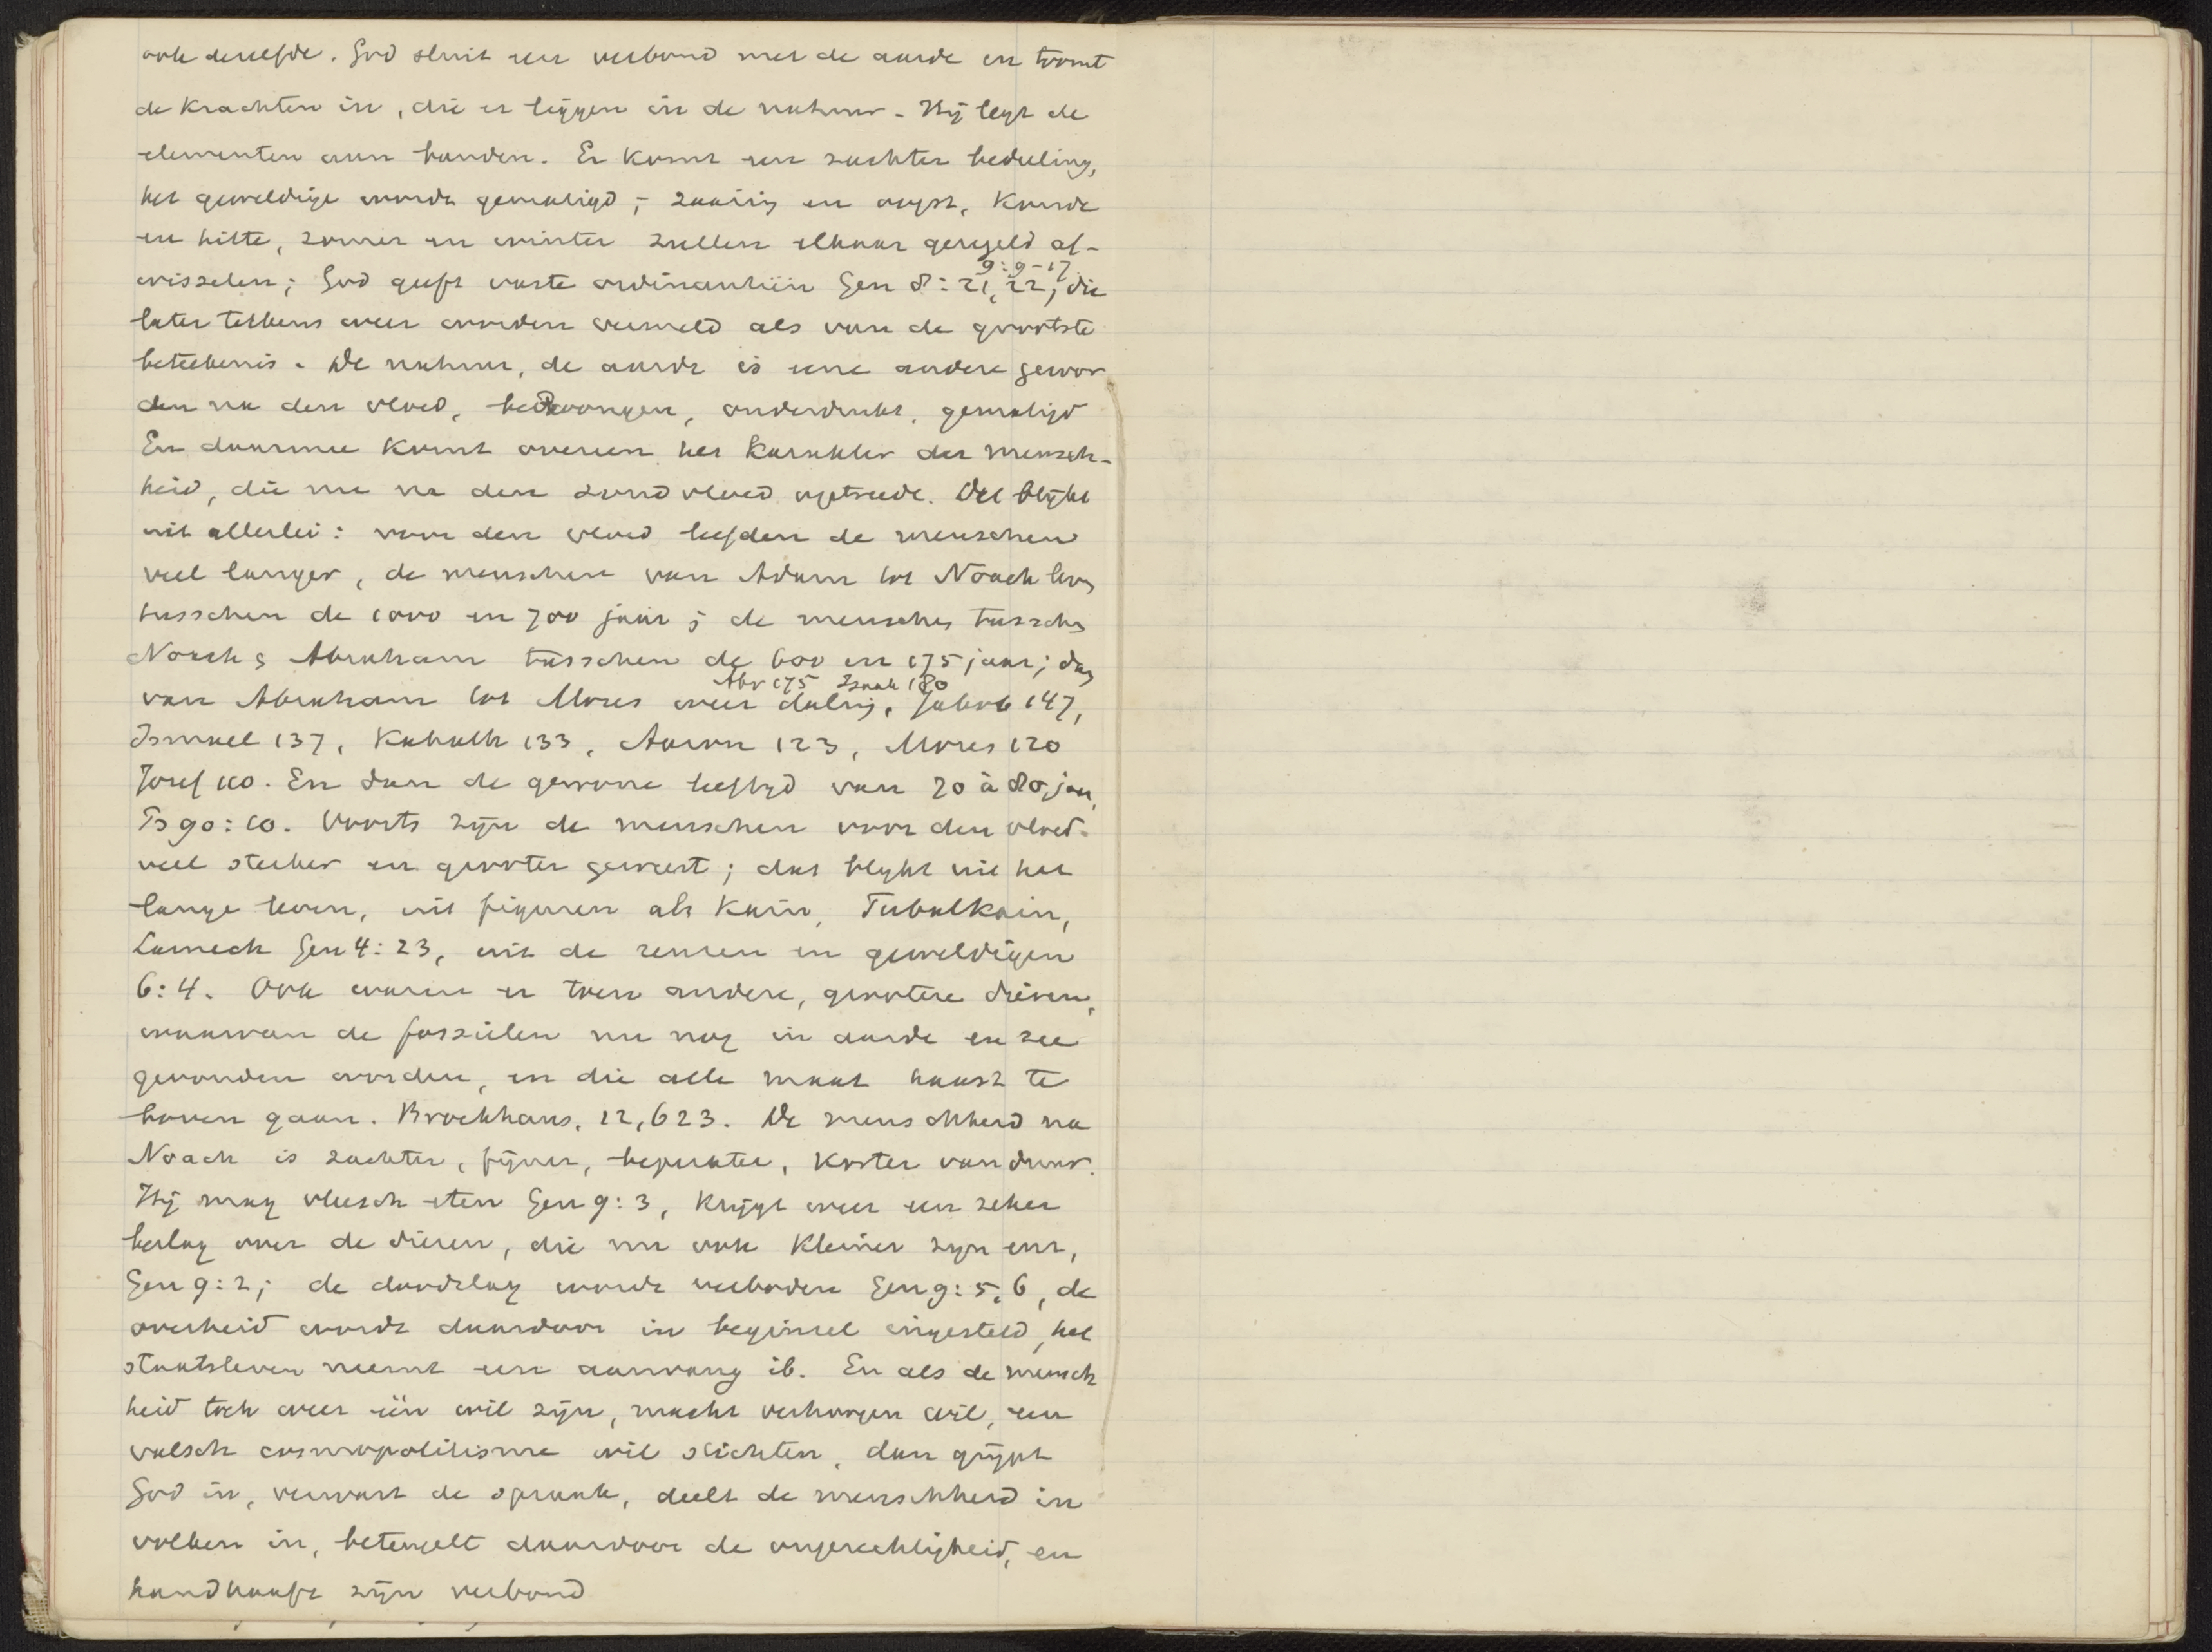 ook dezelfde. God sluit een verbond met de aarde en toomt
de krachten in, die er liggen in de natuur. Hij legt de
elementen aan banden. Er komt een zachter bedeeling,
het geweldige wordt gematigd; zaaiing en oogst, koude
en hitte, zomer en winter zullen elkaar geregeld af-
9:9-17
wisselen; God geeft vaste ordinantiën Gen 8:21,22, die
later telkens weer worden vermeld als van de grootste
beteekenis. De natuur, de aarde is eene andere gewor
den na den vloed, bedwongen, onderdrukt, gematigd
En daarmee komt overeen het karakter der mensch-
heid, die nu na den zondvloed optreedt. Dit blijkt
uit allerlei: voor den vloed leefden de menschen
veel langer, de menschen van Adam tot Noach
tusschen de 1000 en 700 jaar; de menschen tusschen
Noach & Abraham tusschen de 600 en 175 jaar; dan
Abr 175 Izaak 180
van Abraham tot Mozes weer daling, Jakob 147,
Ismael 137, Kahath 133, Aaron 123, Mozes 120
Jozef 110. En dan de gewone leeftijd van 70 à 80 jaar,
Ps 90:10. Voorts zijn de menschen voor den vloed
veel sterker en grooter geweest; dat blijkt uit het
lange leven, uit figuren als Kain, Tubalkain,
Lamech Gen 4:23, uit de reuzen en geweldigen
6:4. Ook waren er toen andere, grootere dieren,
waarvan de fossielen nu nog in aarde en zee
gevonden worden, en die alle maat haast te
boven gaan. Brockhaus, 12,623. De menschheid na
Noach is zachter, fijner, beperkter, korter van duur.
Hij mag vleesch eten Gen 9:3, krijgt weer een zeker
beslag over de dieren, die nu ook kleiner zijn enz,
Gen 9:2; de doodslag wordt verboden Gen 9:5,6, de
overheid wordt daardoor in beginsel ingesteld, het
staatsleven neemt een aanvang ib. En als de mensch
heid toch weer één wil zijn, macht verhoogen wil, een
valsch cosmopolitisme wil stichten, dan grijpt
God in, verwart de spraak, deelt de menschheid in
volken in, beteugelt daardoor de ongerechtigheid, en
handhaaft zijn verbond